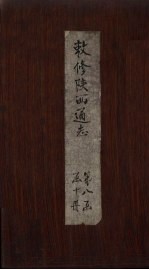 敕修陝西通志
第八函
函十冊